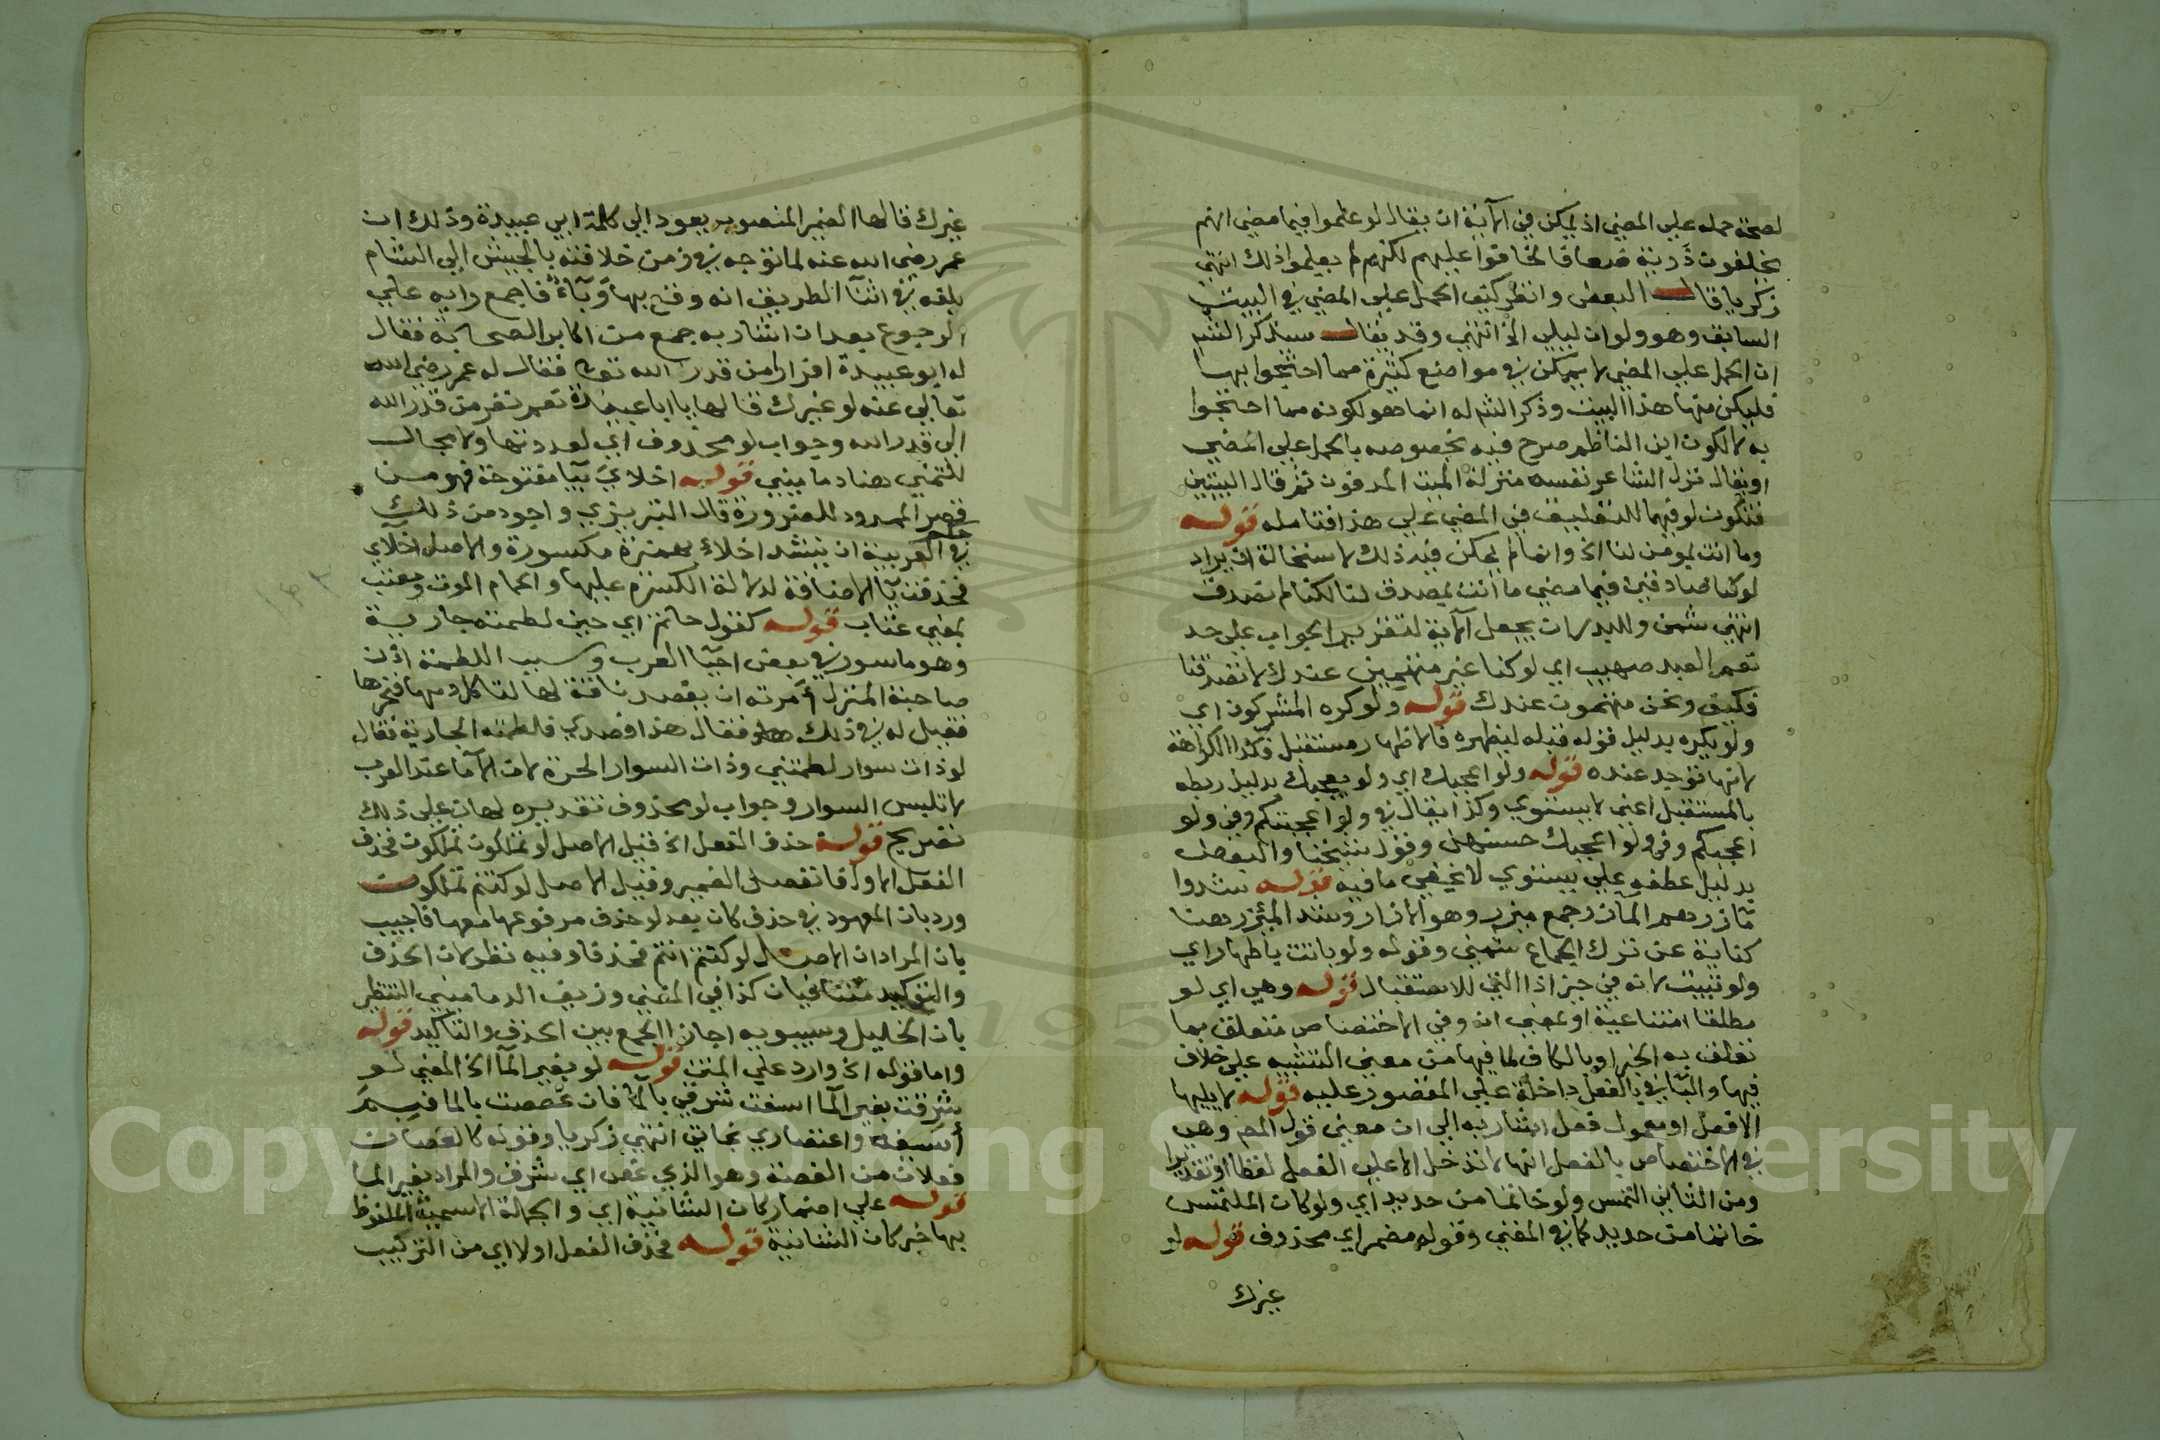 لصحة حمله علي المضي اذ يمكن في الآية ان يقال لو علموا فيما مضي انهم
يخلفون ذرية ضعافا لخافوا عليهم لكنهم لم يعلموا ذلك انتهي
زكريا قال البعض وانظر كيف الحمل علي المضي في البيت
السابق وهو ولو ان ليلي الخ انتهي وقد يقال سيذكر الشم
ان الحمل علي المضي لا يمكن في مواضع كثيرة مما احتجوا بها
فليكن منها هذا البيت وذكر الشم له انما هو لكونه مما احتجوا
به لا لكون ابن الناظم صرح فيه بخصوصه بالحمل علي المضي
او يقال نزل الشاعر نفسه منزلة الميت المدفون ثم قال البيتين
فتكون لو فيهما للتعليق في المضي علي هذا فتامله قوله
وما انت بمومن لنا الخ وانما لم يمكن فيه ذلك لاستحالة ان يراد
لو كنا صادقين فيما مضي ما انت بمصدق لنا لكنا لم نصدق
انتهي شمن وللبدر ان يجعل الآية لتقرير الجواب علي حد
نعم العبد صهيب اي لو كنا غير متهمين عندك لا تصدقنا
فكيف ونحن متهمون عندك قوله ولو كره المشركون اي
ولو يكره بدليل قوله قبله ليظهره فالاظهار مستقبل فكذا الكراهة
لانها توجد عنده قوله ولو اعجبك اي ولو يعجبك بدليل ربطه
بالمستقبل اعني لا يستوي وكذا يقال في ولو اعجبتكم وفي ولو
اعجبكم وفي ولو اعجبك حسنهن وقول شيخنا والبعض
بدليل عطفه علي يستوي لا يخفي ما فيه قوله شدوا
مآزرهم المآزر جمع مئزر وهو الازار وشد المئزر هنا
كناية عن ترك الجماع شمني وقوله ولو باتت باطهار اي
ولو تبيت لانه في حيز اذا التي للاستقبال قوله وهي اي لو
مطلقا امتناعية او بمعني ان وفي الاختصاص متعلق بما
تعلق به الخبر او بالكاف لما فيها من معني التشبيه علي خلاف
فيها والبا في بالفعل داخلة علي المقصور عليه قوله لا يليها
الا فعل او معمول فعل اشار به الي ان معني قول المص وهي
في الاختصاص بالفعل انها لا تدخل الا علي الفعل لفظا او تقديرا
ومن الثاني التمس ولو خاتما من حديد اي ولو كان الملتمس
خاتما من حديد كما في المغني وقوله مضمر اي محذوف قوله لو
غيرك
غيرك قالها الضمير المنصوب يعود الي كلمة ابي عبيدة وذلك ان
عمر رضي الله عنه لما توجه في زمن خلافته بالجيش الي الشام
بلغه في اثنآ الطريق انه وقع بها وبآء فاجمع رايه علي
الرجوع بعد ان اشار به جمع من اكابر الصحابة فقال
له ابو عبيدة افرارا من قدر الله تعالي فقال له عمر رضي الله
تعالي عنه لو غيرك قالها يا ابا عبيدة نعم نفر من قدر الله
الي قدر الله وجواب لو محذوف اي لعددتها ولا مجال
للتمني هنا دماميني قوله اخلاي بيا مفتوحة فهو من
قصر الممدود للضرورة قال التبريزي واجود من ذلك
في العربية ان ينشد اخلاء بهمزة مكسورة والاصل اخلآي
فحذفت يآ الاضافة لدلالة الكسرة عليها والحمام الموت ومعتب
بمعني عتاب قوله كقول حاتم اي حين لطمته جارية
وهو ماسور في بعض احيآ العرب وسبب اللطمة ان
صاحبة المنزل أمرته ان يفصد ناقة لها لتاكل دمها فنحرها
فقيل له في ذلك فقال هذا فصدي فلطمته الجارية فقال
لو ذات سوار لطمتني وذات السوار الحرة لان الآما عند العرب
لا تلبس السوار وجواب لو محذوف تقديره لهان علي ذلك
تصريح قوله حذف الفعل الخ قيل الاصل لو تملكون تملكون فحذف
الفعل الاول فانفصل الضمير وقيل الاصل لو كنتم تملكون
ورد بان المعهود في حذف كان بعد لو حذف مرفوعها معها فاجيب
بان المراد ان الاصل لو كنتم انتم فحذفا وفيه نظر لان الحذف
والتوكيد متنافيان كذا في المغني وزيف الدماميني التنظير
بان الخليل وسيبويه اجازا الجمع بين الحذف والتاكيد قوله
واما قوله الخ وارد علي المتن قوله لو بغير الما الخ المعني لو
شرقت بغير الما اسغت شرقي بالما فان غصصت بالما فبم
أسيغه واعتصاري نجاتي انتهي زكريا وقوله كالغصان
فعلان من الغصة وهو الذي غص اي شرق والمراد بغير الما
قوله علي اضمار كان الشانية اي والجملة الاسمية الملفوظ
بها خبر كان الشانية قوله فحذف الفعل اولا اي من التركيب
Copyright © King Saud University